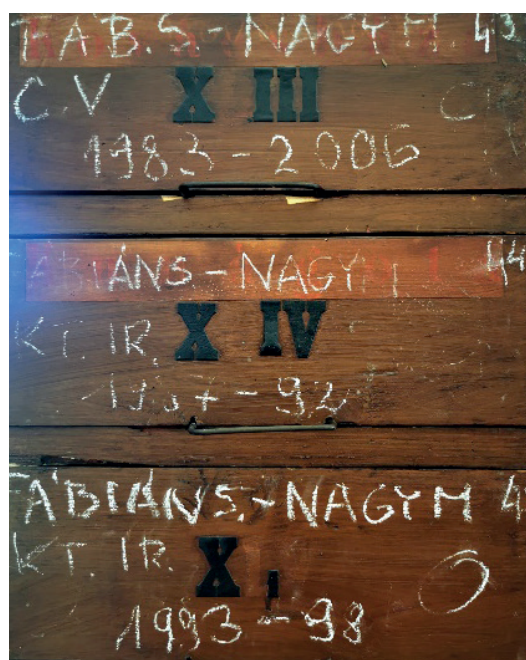 FÁB.S.-NAGY M. 43
C.V X III
1983-2006
FÁBIÁNS-NAGY M 44
KT. IR. X IV
-92
FÁBIÁNS.-NAGY M
KT. IR. X
1993-98